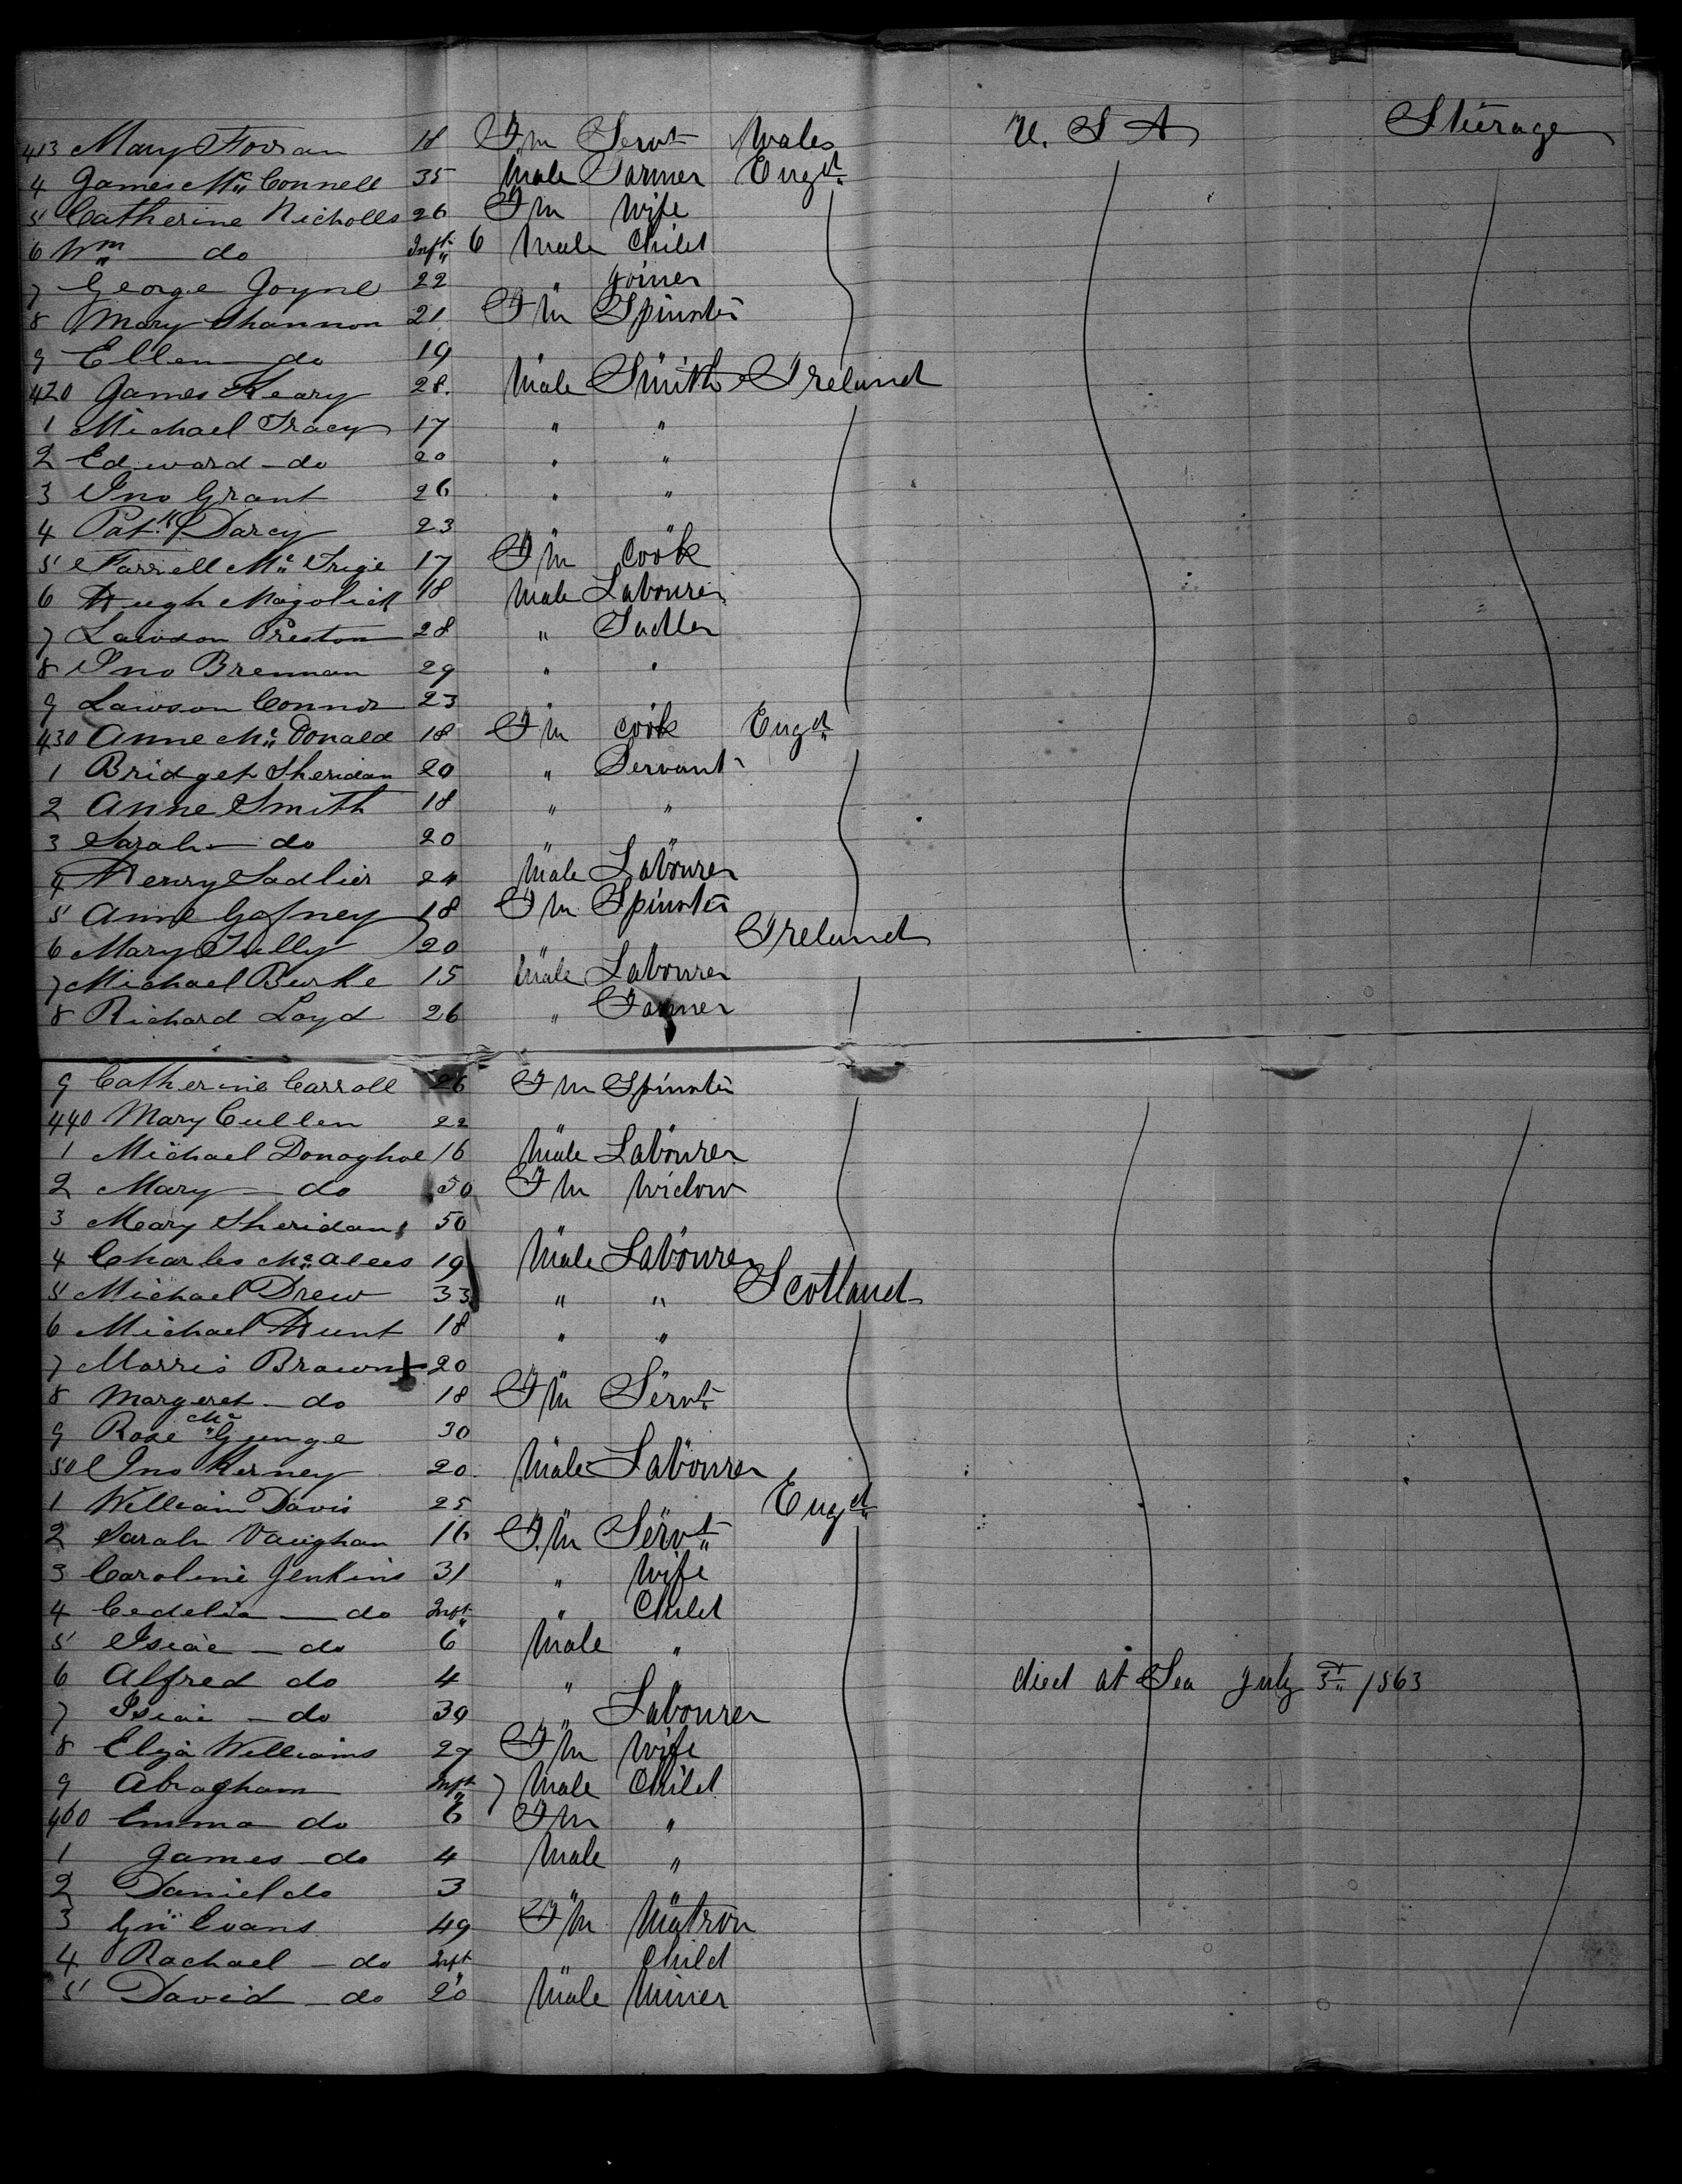 413 Mary Forran 18 Fm Servt Wales U. S A Steerage
4 James Mc Connell 35 Male Farmer Engd
5 Catherine Nicholls 26 Fm Wife
6 Wm do Inft 6 Male Child
7 George Joyne 22 " Joiner
8 Mary Shannon 21 Fm Spinster
9 Ellen do 19 " "
420 James Keary 28 Male Smith Ireland
1 Michael Tracy 17 " "
2 Edward do 20 " "
3 Jno Grant 26 " "
4 Patk Darcy 23 " "
5 Farrell Mc 17 Fm Cook
6 Hugh 18 Male Labourer
7 Lawson Preston 28 " Sadler
8 Jno Brennan 29 " "
9 Lawson Connor 23 "
430 Anne Mc Donald 18 Fm Cook Engd
1 Bridget Sheridan 20 " Servant
2 Anne Smith 18 " "
3 Sarah do 20 " "
4 Henry Sadlier 24 Male Labourer
5 Anne Gafney 18 Fm Spinster
6 Mary Tully 20 " " Ireland
7 Michael Burke 15 Male Labourer
8 Richard Loyd 26 " Farmer
9 Catherine Carroll 26 Fm Spinster
440 Mary Cullen 22 " "
1 Michael Donaghoe 16 Male Labourer
2 Mary do 50 Fm Widow
3 Mary Sheridan 50 " "
4 Charles Mc Alees 19 Male Labourer
5 Michael Drew 33 " " Scotland
6 Michael Hunt 18 " "
7 Morris Brown 20 " "
8 Margeret do 18 Fm Servt
9 Rose Mc 30 " "
50 Jno Kerney 20 Male Labourer
1 William Davis 25 " " Engd
2 Sarah Vaughan 16 Fm Servt
3 Caroline Jenkins 31 " Wife
4 Cedelia do Inft " Child
5 Isiac do 6 Male "
6 Alfred do 4 " " died at Sea July 3d 1863
7 Isiac do 39 " Labourer
8 Eliza Williams 27 Fm Wife
9 Abragham Inft 7 Male Child
460 Emma do 6 Fm "
1 James do 4 Male "
2 Daniel do 3 " "
3 Evans 49 Fm Matron
4 Rachael do Inft " Child
5 David do 20 Male Miner